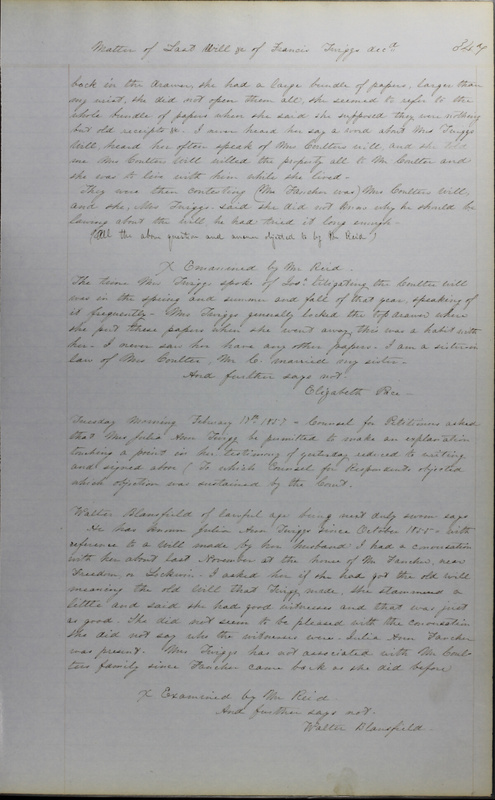 Matter of Last Will &c of Francis Twiggs decd.
back in the drawer, she had a large bundle of papers, larger than
my wrist, she did not open them all, she seemed to refer to the
whole bundle of papers when she said she supposed they were nothing
but old receipts &c. I never heard her say a word about Mrs Twiggs
Will, heard her often speak of Mrs Coulters will, and she told
me Mrs Coulters Will willed the property all to Mr Coulter and
she was to live with him while she lived -
They were then contesting (Mr Fancher was) Mrs Coulters Will,
and she, Mrs Twiggs said she did not know why he should be
lawing about the will he had tried it long enough -
(All the above question and answer objected to by Mr Reid)
X Examined by Mr Reid -
The time Mrs Twiggs spoke of litigating the Coulter will
was in the spring and summer and fall of that year, speaking of
it frequently - Mrs Twiggs generally locked the top drawer where
she put these papers when she went away, this was a habit with
her - I never saw her have any other papers - I am a sister in
law of Mrs Coulter, Mr C. married my sister -
And further says not -
Elizabeth
Tuesday Morning February 17th 1857 - Counsel for Petitioners asked
that Mrs Julia Ann Twigg be permitted to make an explanation
touching a point in her testimony of yesterday reduced to writing
and signed above (To which Counsel for Respondents objected
which objection was sustained by the Court.
Walter Blansfield of lawful age being next duly sworn says
He has known Julia Ann Twiggs since October 1855 - with
reference to a Will made by her husband I had a conversation
with her about last November at the house of Mr Fancher, near
Freedom, or Lockwin - I asked her if she had got the old will
meaning the old Will that Twigg made, she stammered a
little and said she had good witnesses and that was just
as good - She did not seem to be pleased with the conversation
She did not say who the witnesses were - Julia Ann Fancher
was present - Mrs Twiggs has not associated with Mr Coul-
ters family since Fancher came back as she did before
X Examined by Mr Reid -
And further says not -
Walter Blansfield -